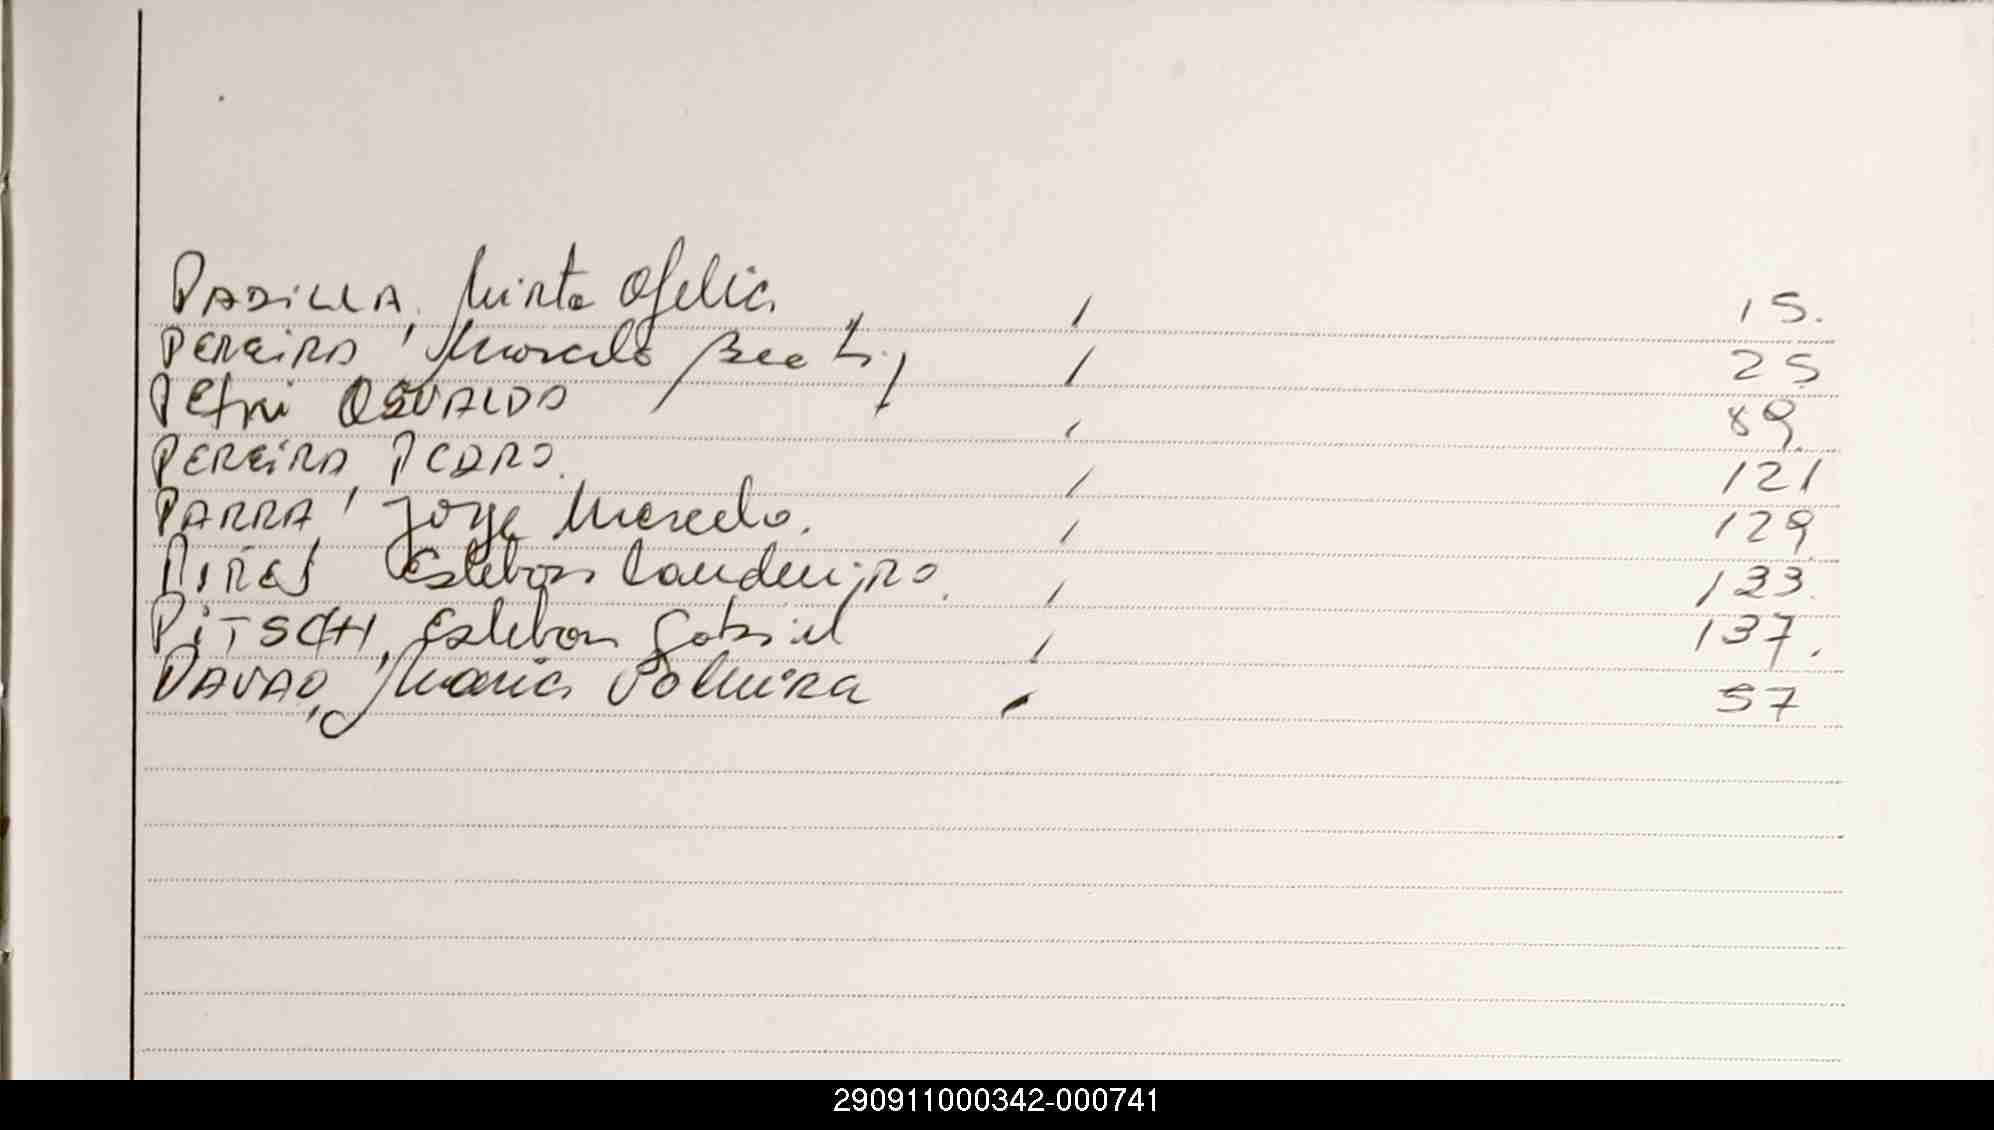 PADILLA, Mirta Ofelia / 15.
PEREIRA, Marcelo / 25
Petri OSVALDO / 89.
PEREIRA, PEDRO. / 121
PARRA, Jorge Marcelo. / 129
Esteban / 133.
PITSCH, Esteban Gabriel / 137.
PAVAO, Maria Polmira / 57
290911000342-000741